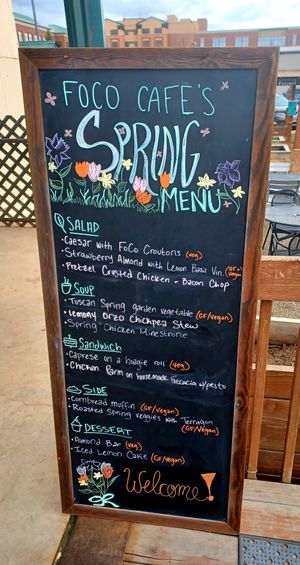 FOCO CAFE'S
SPRING
MENU
SALAD
• Caesar with FoCo Croutons (veg)
• Strawberry Almond with Lemon Basil Vin. (GF + vegan)
• Pretzel Crusted Chicken - Bacon Chop
SOUP
• Tuscan Spring garden vegetable (GF/Vegan)
• Lemony Orzo Chickpea Stew
• Spring Chicken Minestrone
Sandwich
• Caprese on a hoagie roll (veg)
• Chicken Parm on housemade Foccacia w/pesto
SIDE
• Cornbread muffin (GF/Vegan)
• Roasted Spring Veggies with Terragon (GF/Vegan)
DESSERT
• Almond Bar (veg)
• Iced Lemon Cake (GF/Vegan)
Welcome!